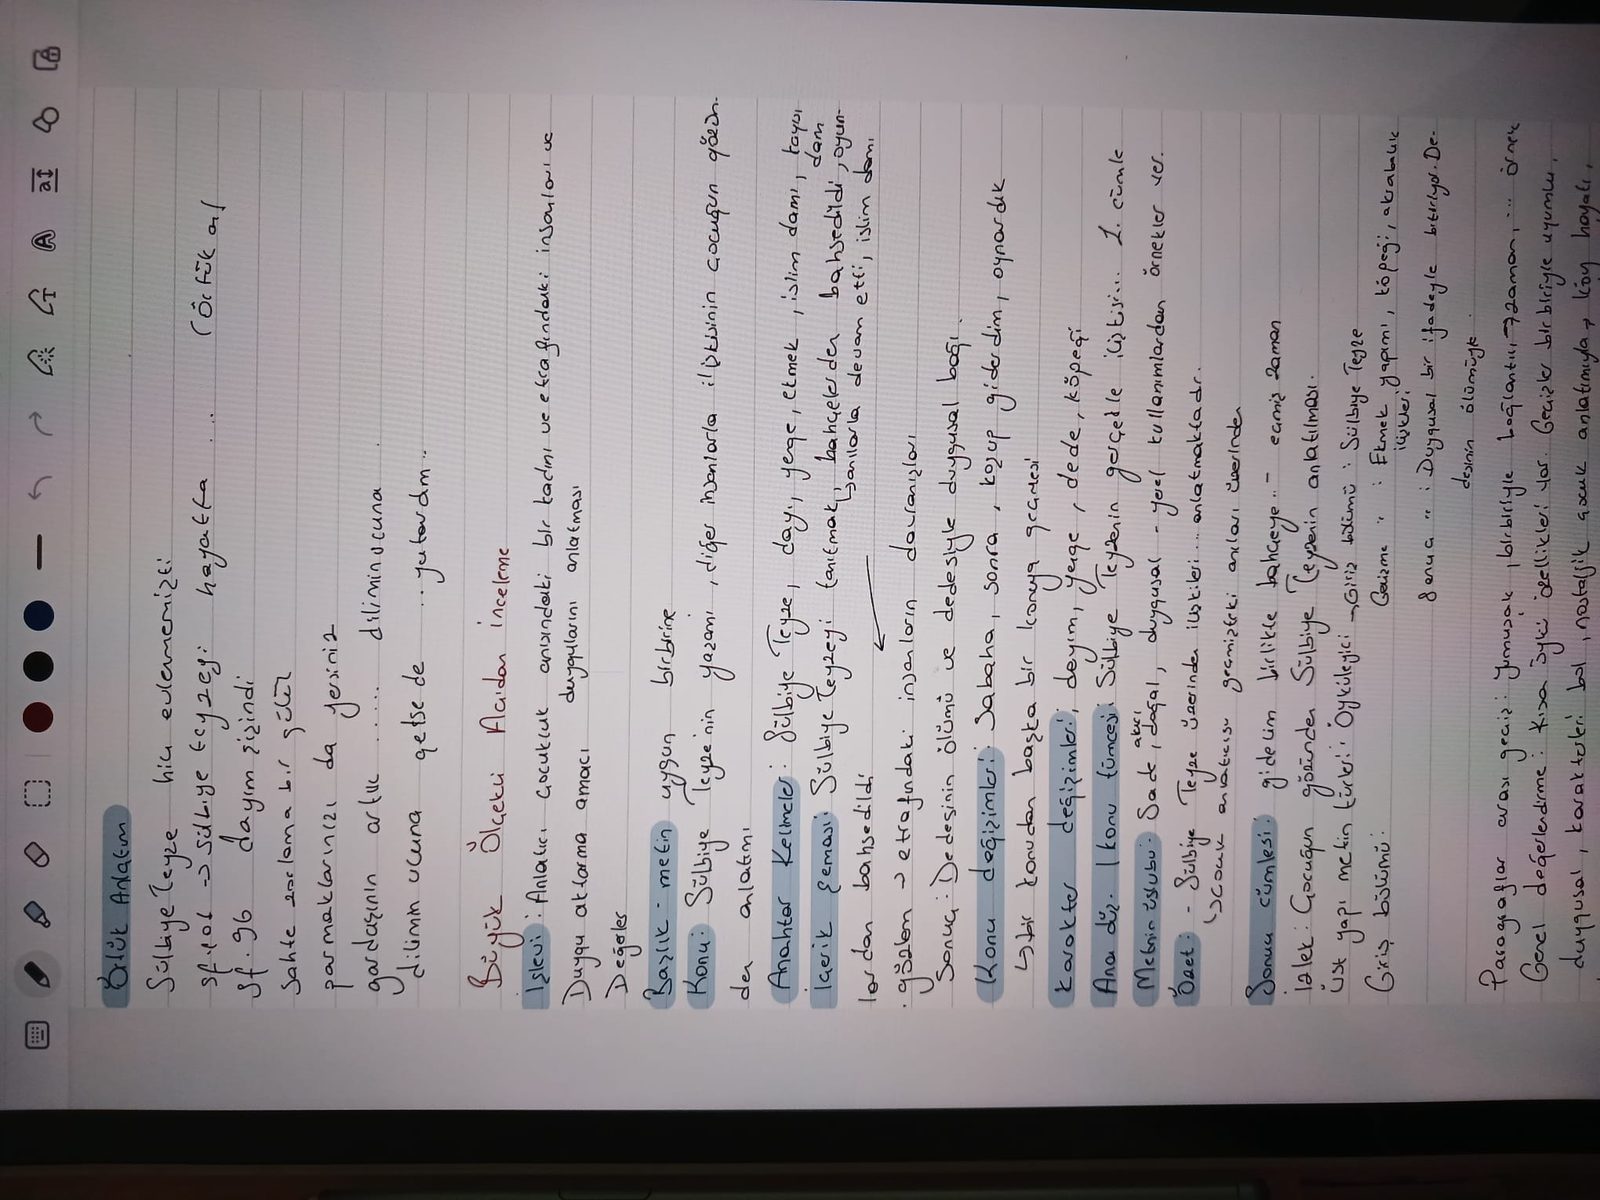 Örtük Anlatım
Sülbiye Teyze hiç evlenmemişti
sf. → sülbiye teyzeyi hayatta ... (örtük an)
Sf. 96 dayım sizindi
Sahte zorlama bir gülüş
parmaklarınızı da yersiniz
gardaşının artık ..... diliminucuna
dilimin ucuna gelse de ... yutardım..
Büyük Ölçekli Açıdan İnceleme
İşlevi: Anlatıcı çocukluk anısındaki bir kadını ve etrafındaki insanları ve
Duygu aktarma amacı duygularını anlatması
Değerler
Başlık - metin uygun birbirine
Konu: Sülbiye Teyze'nin yaşamı, diğer insanlarla ilişkisinin çocuğun gözün-
den anlatımı
Anahtar Kelimeler: Sülbiye Teyze, dayı, yenge, ekmek, islim damı, kayısı
dam
İçerik Şeması: Sülbiye Teyzeyi tanıtmak, bahçelerden bahsedildi, oyun-
lardan bahsedildi ↳ anılarla devam etti, islim damı
· gözlem → etrafındaki insanların davranışları
Sonuç: Dedesinin ölümü ve dedesiyle duygusal bağı.
Konu değişimleri: Sabaha, sonra, koşup giderdim, oynardık
↳ bir konudan başka bir konuya geçmesi
Karakter değişimleri: dayım, yenge, dede, köpeği
Ana düş. / konu tümcesi Sülbiye Teyzenin gerçekle ilişkisi... 1. cümle
Metnin üslubu: Sade, akıcı, doğal, duygusal - yerel kullanımlardan örnekler ver.
Özet: - Sülbiye Teyze üzerinden ilişkileri... anlatmaktadır.
↳ çocuk anlatıcısı geçmişteki anıları üzerinden
Sonuç cümlesi: gidelim birlikte bahçeye.. - geçmiş zaman
İzlek: Çocuğun gözünden Sülbiye Teyzenin anlatılması.
Üst yapı metin türleri: Öyküleyici → Giriş bölümü: Sülbiye Teyze
Giriş bölümü: Gelişme " : Ekmek yapımı, köpeği, akrabalık
ilişkileri
Sonuç " : Duygusal bir ifadeyle bitiriliyor. De-
desinin ölümüyle.
Paragraflar arası geçiş: yumuşak, birbiriyle bağlantılı → zaman, ... örnek
Genel değerlendirme: Kısa öykü özellikleri var. Geçişler birbiriyle uyumlu,
duygusal, karakterleri bol, nostaljik çocuk anlatımıyla, köy hayatı,